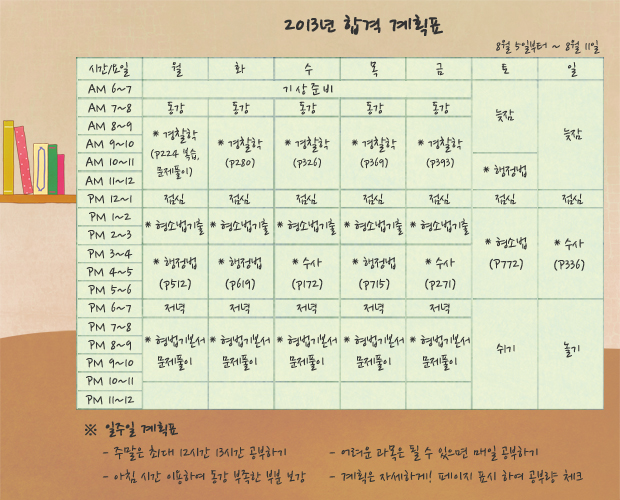 2013년 합격 계획표
8월 5일부터 ~ 8월 11일
시간/요일 월 화 수 목 금 토 일
AM 6~7 기상준비
AM 7~8 동강 동강 동강 동강 동강
늦잠 늦잠
AM 8~9
AM 9~10
AM 10~11
AM 11~12
* 경찰학 * 경찰학 * 경찰학 * 경찰학 * 경찰학
(P224 복습, (P280) (P326) (P369) (P393)
문제풀이)
* 행정법
PM 12~1 점심 점심 점심 점심 점심 점심 점심
PM 1~2
PM 2~3
* 형소법기출 * 형소법기출 * 형소법기출 * 형소법기출 * 형소법기출
PM 3~4
PM 4~5
PM 5~6
* 행정법 * 행정법 * 수사 * 행정법 * 수사
(P512) (P619) (P172) (P715) (P271)
* 형소법 * 수사
(P772) (P336)
PM 6~7 저녁 저녁 저녁 저녁 저녁
PM 7~8
PM 8~9
PM 9~10
* 형법기본서 * 형법기본서 * 형법기본서 * 형법기본서 * 형법기본서
문제풀이 문제풀이 문제풀이 문제풀이 문제풀이
쉬기 놀기
PM 10~11
PM 11~12
※ 일주일 계획표
- 주말은 최대 12시간 13시간 공부하기
- 어려운 과목은 될 수 있으면 매일 공부하기
- 아침 시간 이용하여 동강 부족한 부분 보강
- 계획은 자세하게! 페이지 표시 하여 공부량 체크